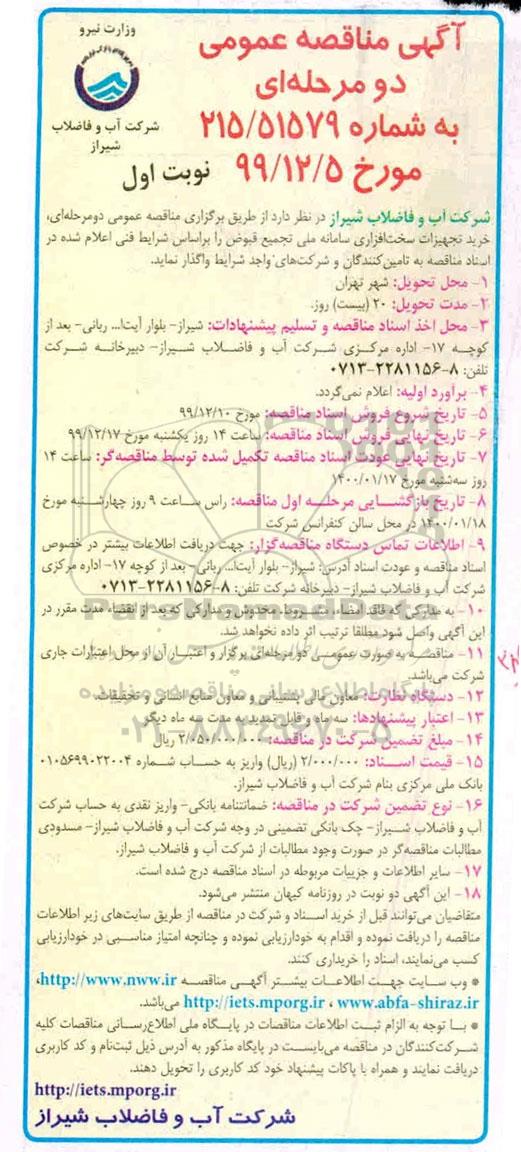 وزارت نیرو
شرکت آب و فاضلاب
شیراز
آگهی مناقصه عمومی
دو مرحله‌ای
به شماره ۲۱۵/۵۱۵۷۹
مورخ ۹۹/۱۲/۵ نوبت اول
شرکت آب و فاضلاب شیراز در نظر دارد از طریق برگزاری مناقصه عمومی دومرحله‌ای،
خرید تجهیزات سخت‌افزاری سامانه ملی تجمیع قبوض را براساس شرایط فنی اعلام شده در
اسناد مناقصه به تامین‌کنندگان و شرکت‌های واجد شرایط واگذار نماید.
۱- محل تحویل: شهر تهران
۲- مدت تحویل: ۲۰ (بیست) روز.
۳- محل اخذ اسناد مناقصه و تسلیم پیشنهادات: شیراز- بلوار آیت‌ا... ربانی- بعد از
کوچه ۱۷- اداره مرکزی شرکت آب و فاضلاب شیراز- دبیرخانه شرکت
تلفن: ۸-۲۲۸۱۱۵۶-۰۷۱۳
۴- برآورد اولیه: اعلام نمی‌گردد.
۵- تاریخ شروع فروش اسناد مناقصه: مورخ ۹۹/۱۲/۱۰
۶- تاریخ نهایی فروش اسناد مناقصه: ساعت ۱۴ روز یکشنبه مورخ ۹۹/۱۲/۱۷
۷- تاریخ نهایی عودت اسناد مناقصه تکمیل شده توسط مناقصه‌گر: ساعت ۱۴
روز سه‌شنبه مورخ ۱۴۰۰/۰۱/۱۷
۸- تاریخ بازگشایی مرحله اول مناقصه: راس ساعت ۹ روز چهارشنبه مورخ
۱۴۰۰/۰۱/۱۸ در محل سالن کنفرانس شرکت
۹- اطلاعات تماس دستگاه مناقصه‌گزار: جهت دریافت اطلاعات بیشتر در خصوص
اسناد مناقصه و عودت اسناد آدرس: شیراز- بلوار آیت‌ا... ربانی- بعد از کوچه ۱۷- اداره مرکزی
شرکت آب و فاضلاب شیراز- دبیرخانه شرکت تلفن: ۸-۲۲۸۱۱۵۶-۰۷۱۳
۱۰- به مدارکی که فاقد امضاء، مشروط، مخدوش و مدارکی که بعد از انقضاء مدت مقرر در
این آگهی واصل شود مطلقا ترتیب اثر داده نخواهد شد.
۱۱- مناقصه به صورت عمومی دو مرحله‌ای برگزار و اعتبار آن از محل اعتبارات جاری
شرکت می‌باشد.
۱۲- دستگاه نظارت: معاون مالی پشتیبانی و معاون منابع انسانی و تحقیقات.
۱۳- اعتبار پیشنهادها: سه ماه و قابل تمدید به مدت سه ماه دیگر
۱۴- مبلغ تضمین شرکت در مناقصه: ۲/۰۵۰/۰۰۰/۰۰۰ ریال
۱۵- قیمت اسناد: ۲/۰۰۰/۰۰۰ (ریال) واریز به حساب شماره ۰۱۰۵۶۹۹۰۲۲۰۰۴
بانک ملی مرکزی بنام شرکت آب و فاضلاب شیراز.
۱۶- نوع تضمین شرکت در مناقصه: ضمانتنامه بانکی- واریز نقدی به حساب شرکت
آب و فاضلاب شیراز- چک بانکی تضمینی در وجه شرکت آب و فاضلاب شیراز- مسدودی
مطالبات مناقصه‌گر در صورت وجود مطالبات از شرکت آب و فاضلاب شیراز.
۱۷- سایر اطلاعات و جزییات مربوطه در اسناد مناقصه درج شده است.
۱۸- این آگهی دو نوبت در روزنامه کیهان منتشر می‌شود.
متقاضیان می‌توانند قبل از خرید اسناد و شرکت در مناقصه از طریق سایت‌های زیر اطلاعات
مناقصه را دریافت نموده و اقدام به خودارزیابی نموده و چنانچه امتیاز مناسبی در خودارزیابی
کسب می‌نمایند، اسناد را خریداری کنند.
* وب سایت جهت اطلاعات بیشتر آگهی مناقصه http://www.nww.ir،
http://iets.mporg.ir ، www.abfa-shiraz.ir می‌باشد.
* با توجه به الزام ثبت اطلاعات مناقصات در پایگاه ملی اطلاع‌رسانی مناقصات کلیه
شرکت‌کنندگان در مناقصه می‌بایست در پایگاه مذکور به آدرس ذیل ثبت‌نام و کد کاربری
دریافت نمایند و همراه با پاکات پیشنهاد خود کد کاربری را تحویل دهند.
http://iets.mporg.ir
شرکت آب و فاضلاب شیراز
ParsNamadData
پایگاه اطلاع رسانی مناقصه و مزایده
۰۲۱-۸۸۳۴۹۶۷۰-۵